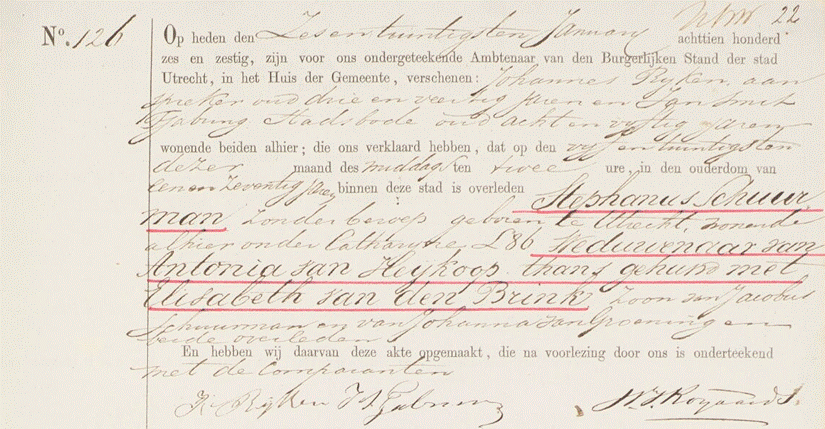 22
No. 126 Op heden den Zesentwintigsten January achttien honderd
zes en zestig, zijn voor ons ondergeteekende Ambtenaar van den Burgerlijken Stand der stad
Utrecht, in het Huis der Gemeente, verschenen: Johannes Ryken, aan
spreker oud drie en veertig jaren en Jan Smit
Stadsbode oud acht en vyftig jaren
wonende beiden alhier; die ons verklaard hebben, dat op den vyf en twintigsten
dezer maand des middags ten twee ure, in den ouderdom van
een en zeventig jaren binnen deze stad is overleden Stephanus Schuur
man zonder beroep geboren te Utrecht, wonende
alhier onder Catharyne L 86 Weduwenaar van
Antonia van Heykoop thans gehuwd met
Elisabeth van den Brink zoon van Jacobus
Schuurman en van Johanna van Groeningen
beide overleden
En hebben wij daarvan deze akte opgemaakt, die na voorlezing door ons is onderteekend
met de Comparanten
J. Ryken